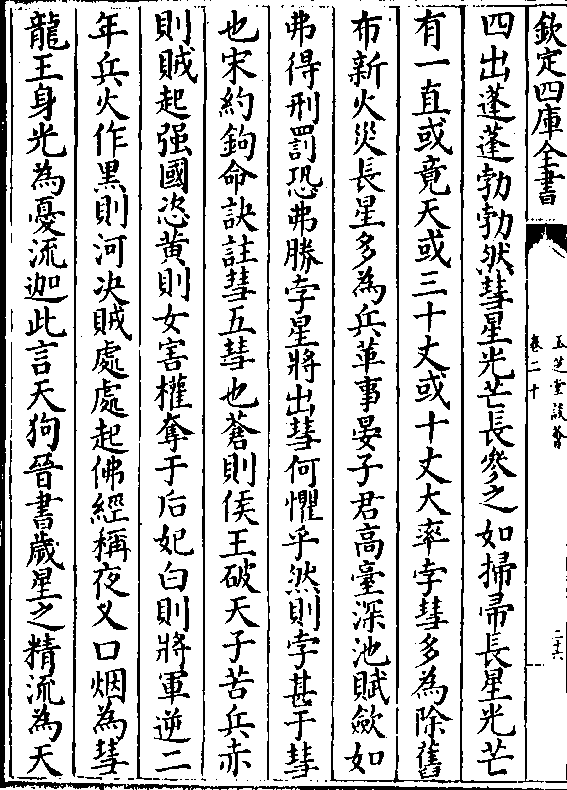 欽定四庫全書
玉芝堂談薈
卷二十
二十六
四出蓬蓬勃勃然彗星光芒長參之如掃帚長星光芒
有一直或竟天或三十丈或十丈大率孛彗多為除舊
布新火災長星多為兵革事晏子君高臺深池賦斂如
弗得刑罰恐弗勝孛星將出彗何懼乎然則孛甚于彗
也宋約鉤命訣註彗五彗也蒼則侯王破天子苦兵赤
則賊起强國恣黄則女害權奪于后妃白則將軍逆二
年兵火作黒則河决賊處處起佛經稱夜叉口烟為彗
龍王身光為憂流迦此言天狗晉書歲星之精流為天